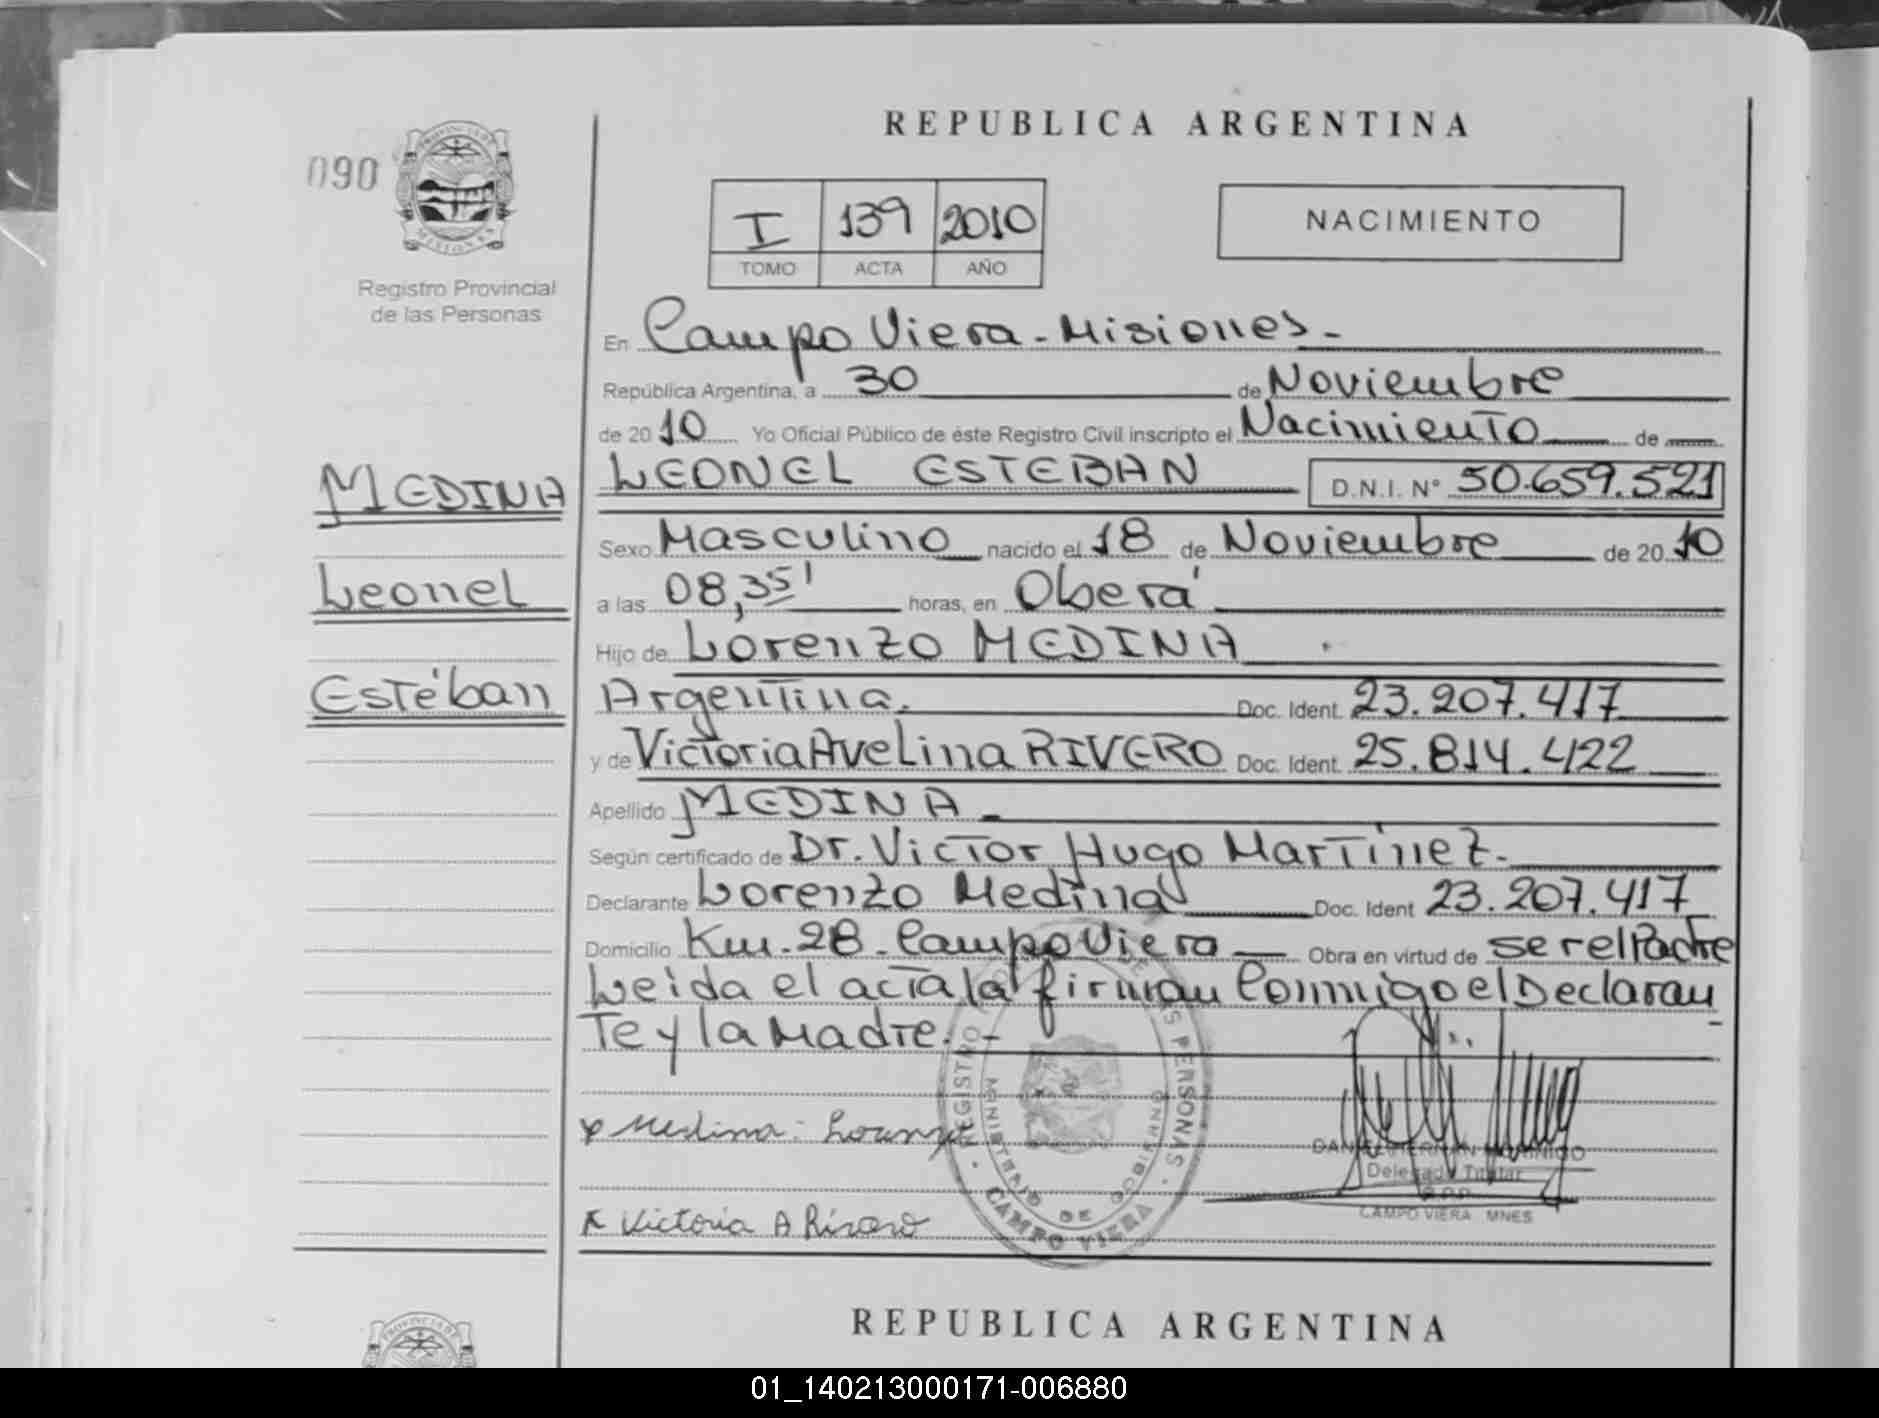 REPUBLICA ARGENTINA
090
PROVINCIA DE
MISIONES
Registro Provincial
de las Personas
I 139 2010
TOMO ACTA AÑO
NACIMIENTO
En Campo Viera - Misiones -
República Argentina, a 30 de Noviembre
de 20 10 Yo Oficial Público de éste Registro Civil inscripto el Nacimiento de
MEDINA
Leonel
Estéban
LEONEL ESTEBAN D.N.I. N° 50.659.521
Sexo Masculino nacido el 18 de Noviembre de 20 10
a las 08,35' horas, en Oberá
Hijo de Lorenzo MEDINA
Argentina. Doc. Ident. 23.207.417
y de Victoria Avelina RIVERO Doc. Ident. 25.814.422
Apellido MEDINA -
Según certificado de Dr. Victor Hugo Martínez.-
Declarante Lorenzo Medina Doc. Ident 23.207.417
Domicilio Km. 28 - Campo Viera - Obra en virtud de ser el Padre
Leida el acta la firman Conmigo el Declaran
te y la Madre. -
x Medina: Lorenzo
x Victoria A Rivero
REGISTRO DE LAS PERSONAS
MINISTERIO DE GOBIERNO
CAMPO VIERA
Delegado Titular
R.P.P.
CAMPO VIERA MNES
REPUBLICA ARGENTINA
PROVINCIA DE
01_140213000171-006880